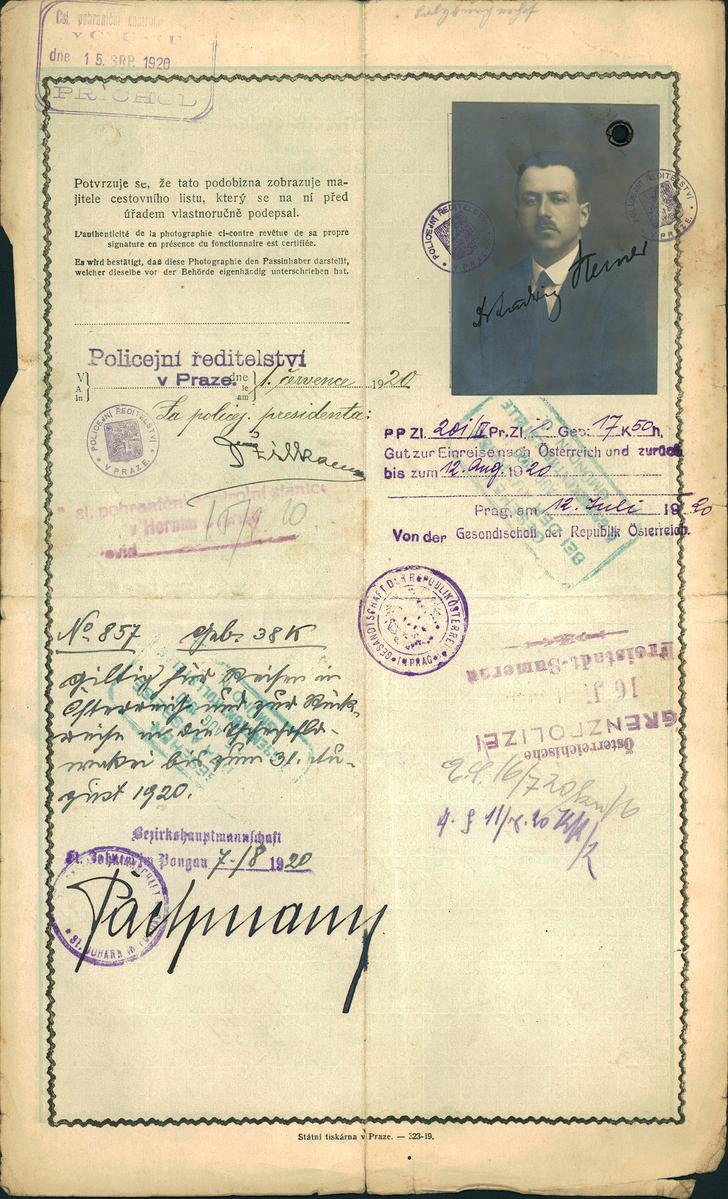 Čsl. pohraniční kontrola
dne 15. SRP. 1920
PŘÍCHOD
Potvrzuje se, že tato podobizna zobrazuje ma-
jitele cestovního listu, který se na ní před
úřadem vlastnoručně podepsal.
L'authenticité de la photographie ci-contre revêtue de sa propre
signature en présence du fonctionnaire est certifiée.
Es wird bestätigt, daß diese Photographie den Passinhaber darstellt,
welcher dieselbe vor der Behörde eigenhändig unterschrieben hat.
POLICEJNÍ ŘEDITELSTVÍ
V PRAZE
POLICEJNÍ ŘEDITELSTVÍ
V PRAZE
Dr Ludwig
Policejní ředitelství
V
A
in
v Praze.
dne
le
am
1. července 1920
Za policej. presidenta:
POLICEJNÍ ŘEDITELSTVÍ
V PRAZE
sl. pohraniční kontrolní stanice
v Horním
PPZl. 201/II Pr.Zl. Geb: 17 K 50 h.
Gut zur Einreise nach Österreich und zurück
bis zum 12. Aug. 1920
Prag, am 12. Juli 1920
Von der Gesandtschaft der Republik Österreich.
GESANDTSCHAFT DER REPUBLIK ÖSTERREICH
IN PRAG
No 857 Geb. 38 K
Giltig für Reisen in
Österreich und zur Rück-
reise in die Tschechoslo-
wakei bis zum 31. Au-
gust 1920.
Bezirkshauptmannschaft
St. Johann im Pongau 7./8 1920
ST. JOHANN IM
Freistadt-Summerau
16 J
GRENZPOLIZEI
Österreichische
Státní tiskárna v Praze. — 323-19.